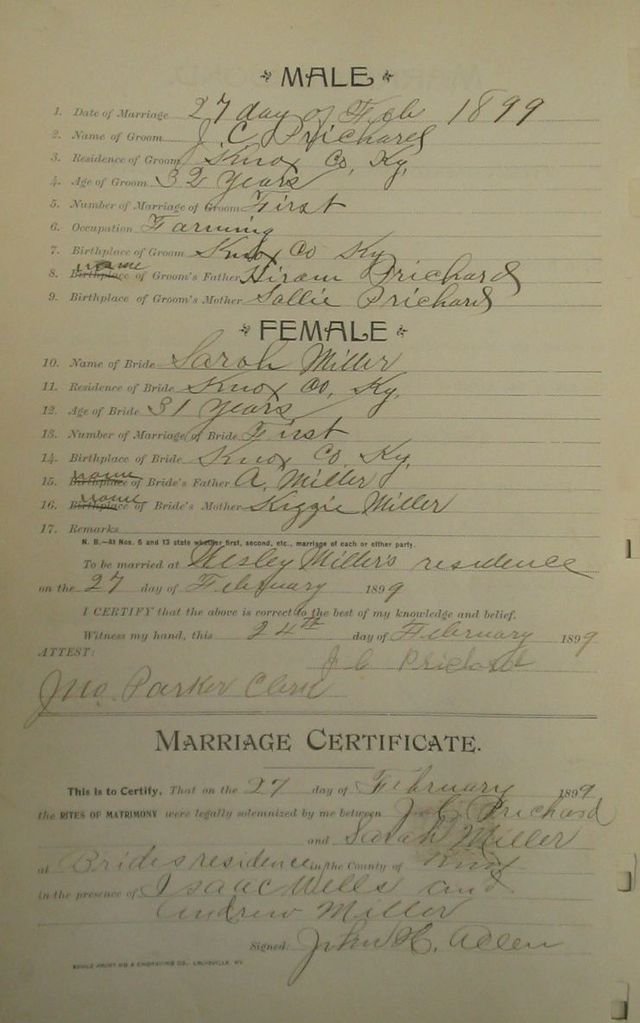 MALE
1. Date of Marriage 27 day of Feb 1899
2. Name of Groom J. C. Prichard
3. Residence of Groom Knox Co, Ky,
4. Age of Groom 32 years
5. Number of Marriage of Groom First
6. Occupation Farming
7. Birthplace of Groom Knox Co Ky
8. Birthplace name of Groom's Father Hiram Prichard
9. Birthplace of Groom's Mother Sallie Prichard
FEMALE
10. Name of Bride Sarah Miller
11. Residence of Bride Knox Co, Ky,
12. Age of Bride 31 years
13. Number of Marriage of Bride First
14. Birthplace of Bride Knox Co Ky,
15. Birthplace name of Bride's Father A. Miller
16. Birthplace name of Bride's Mother Kizzie Miller
17. Remarks
N. B.—At Nos. 5 and 13 state whether first, second, etc., marriage of each or either party.
To be married at Wesley Miller's residence
on the 27 day of February 1899
I CERTIFY that the above is correct to the best of my knowledge and belief.
Witness my hand, this 24th day of February 1899
J C Prichard
ATTEST:
Jno. Parker Clerk
MARRIAGE CERTIFICATE.
This is to Certify, That on the 27 day of February 1899
the RITES OF MATRIMONY were legally solemnized by me between J. C. Prichard
and Sarah Miller
at Brides residence in the County of Knox
in the presence of Isaac Wells and
Andrew Miller
Signed: John H. Allen
PRINTING & ENGRAVING CO., LOUISVILLE, KY.